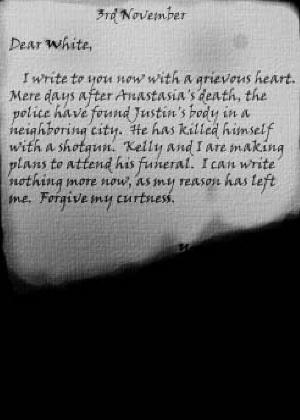 3rd November
Dear White,
I write to you now with a grievous heart.
Mere days after Anastasia's death, the
police have found Justin's body in a
neighboring city. He has killed himself
with a shotgun. Kelly and I are making
plans to attend his funeral. I can write
nothing more now, as my reason has left
me. Forgive my curtness.